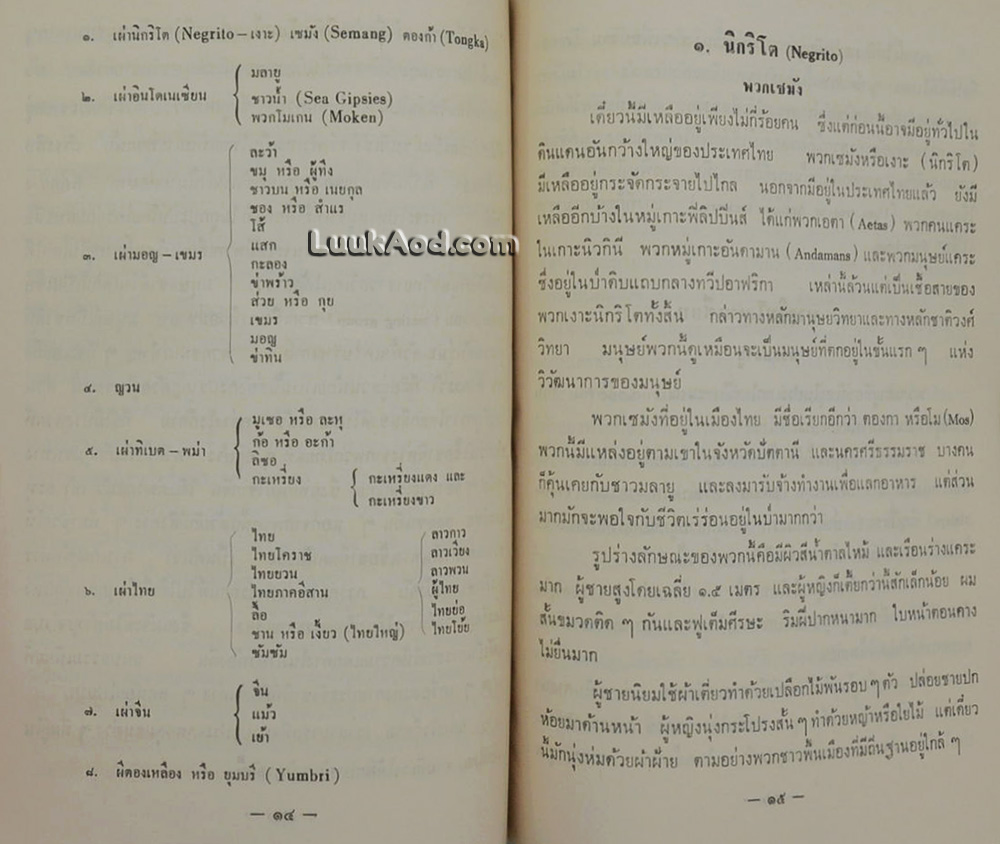 ๑. เผ่านิกริโต (Negrito – เงาะ) เซมัง (Semang) ตองก้า (Tongka)
๒. เผ่าอินโดเนเซียน
มลายู
ชาวน้ำ (Sea Gipsies)
พวกโมเกน (Moken)
๓. เผ่ามอญ – เขมร
ละว้า
ขมุ หรือ ผู้ทึง
ชาวบน หรือ เนยกุล
ชอง หรือ สำแร
โส้
แสก
กะลอง
ข่าพร้าว
ส่วย หรือ กุย
เขมร
มอญ
ข่าทิน
๔. ญวน
๕. เผ่าทิเบต – พม่า
มูเซอ หรือ ละหุ
ก้อ หรือ อะก้า
ลิซอ
กะเหรี่ยง
กะเหรี่ยงแดง และ
กะเหรี่ยงขาว
๖. เผ่าไทย
ไทย
ไทยโคราช
ไทยยวน
ไทยภาคอีสาน
ลื้อ
ชาน หรือ เงี้ยว (ไทยใหญ่)
ซัมซัม
ลาวกาว
ลาวเวียง
ลาวพวน
ผู้ไทย
ไทยย่อ
ไทยโย้ย
๗. เผ่าจีน
จีน
แม้ว
เย้า
๘. ผีตองเหลือง หรือ ยุมบรี (Yumbri)
— ๑๔ —
๑. นิกริโต (Negrito)
พวกเซมัง
เดี๋ยวนี้มีเหลืออยู่เพียงไม่กี่ร้อยคน ซึ่งแต่ก่อนนี้อาจมีอยู่ทั่วไปใน
ดินแดนอันกว้างใหญ่ของประเทศไทย พวกเซมังหรือเงาะ (นิกริโต)
มีเหลืออยู่กระจัดกระจายไปไกล นอกจากมีอยู่ในประเทศไทยแล้ว ยังมี
เหลืออีกบ้างในหมู่เกาะฟิลิปปีนส์ ได้แก่พวกเอตา (Aetas) พวกคนแคระ
ในเกาะนิวกินี พวกหมู่เกาะอันดามาน (Andamans) และพวกมนุษย์แคระ
ซึ่งอยู่ในป่าดิบแถบกลางทวีปอาฟริกา เหล่านี้ล้วนแต่เป็นเชื้อสายของ
พวกเงาะนิกริโตทั้งสิ้น กล่าวทางหลักมานุษยวิทยาและทางหลักชาติวงศ์
วิทยา มนุษย์พวกนี้ดูเหมือนจะเป็นมนุษย์ที่ตกอยู่ในขั้นแรก ๆ แห่ง
วิวัฒนาการของมนุษย์
พวกเซมังที่อยู่ในเมืองไทย มีชื่อเรียกอีกว่า ตองกา หรือโม (Mos)
พวกนี้มีแหล่งอยู่ตามเขาในจังหวัดปัตตานี และนครศรีธรรมราช บางคน
ก็คุ้นเคยกับชาวมลายู และลงมารับจ้างทำงานเพื่อแลกอาหาร แต่ส่วน
มากมักจะพอใจกับชีวิตเร่ร่อนอยู่ในป่ามากกว่า
รูปร่างลักษณะของพวกนี้คือมีผิวสีน้ำตาลไหม้ และเรือนร่างแคระ
มาก ผู้ชายสูงโดยเฉลี่ย ๑.๕ เมตร และผู้หญิงก็เตี้ยกว่านี้สักเล็กน้อย ผม
สั้นขมวดติด ๆ กันและฟูเต็มศีรษะ ริมฝีปากหนามาก ใบหน้าตอนคาง
ไม่ยื่นมาก
ผู้ชายนิยมใช้ผ้าเตี่ยวทำด้วยเปลือกไม้พันรอบ ๆ ตัว ปล่อยชายปก
ห้อยมาด้านหน้า ผู้หญิงนุ่งกระโปรงสั้น ๆ ทำด้วยหญ้าหรือใบไม้ แต่เดี๋ยว
นี้มักนุ่งห่มด้วยผ้าฝ้าย ตามอย่างพวกชาวพื้นเมืองที่มีถิ่นฐานอยู่ใกล้ ๆ
— ๑๕ —
LuukAod.com